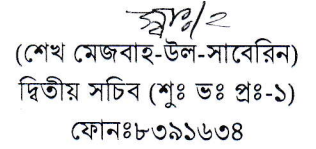 স্বাঃ/২
(শেখ মেজবাহ-উল-সাবেরিন)
দ্বিতীয় সচিব (শুঃ ভঃ প্রঃ-১)
ফোনঃ৮৩৯১৬৩৪